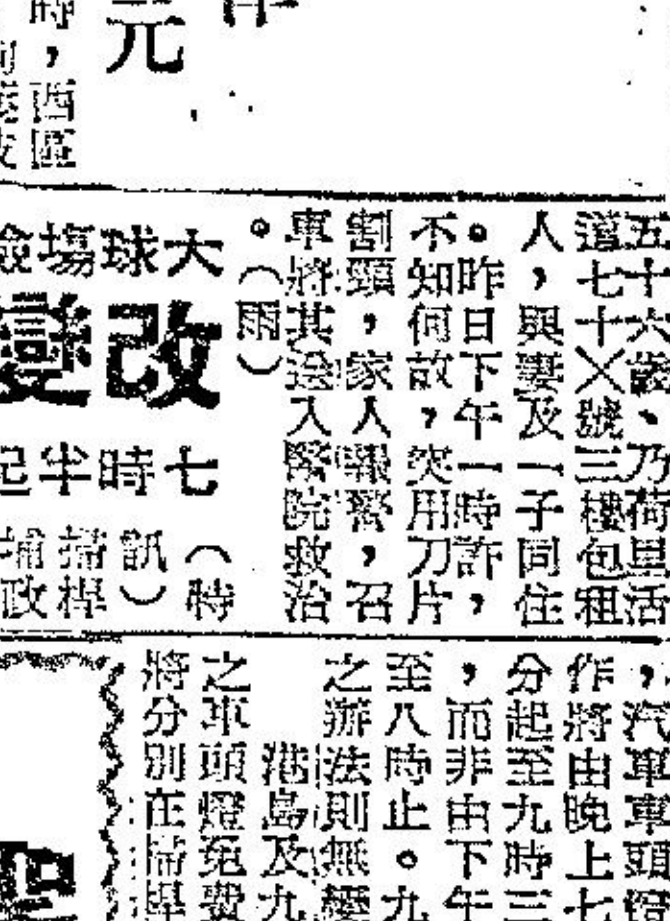 元
時，西區
五十六歲、乃荷里活
道七十×號三樓包租
人，與妻及一子同住
。昨日下午一時許，
不知何故，突用刀片
割頸，家人報警，召
車將其送入醫院救治
。（雨）
大球場
改變
七時半起
（特
訊）
掃桿
補政
，汽車車頭
作將由晚上七
分起至九時三
，而非由下午
至八時止。九
之辦法則無變
港島及九
之車頭燈免費
將分別在掃桿